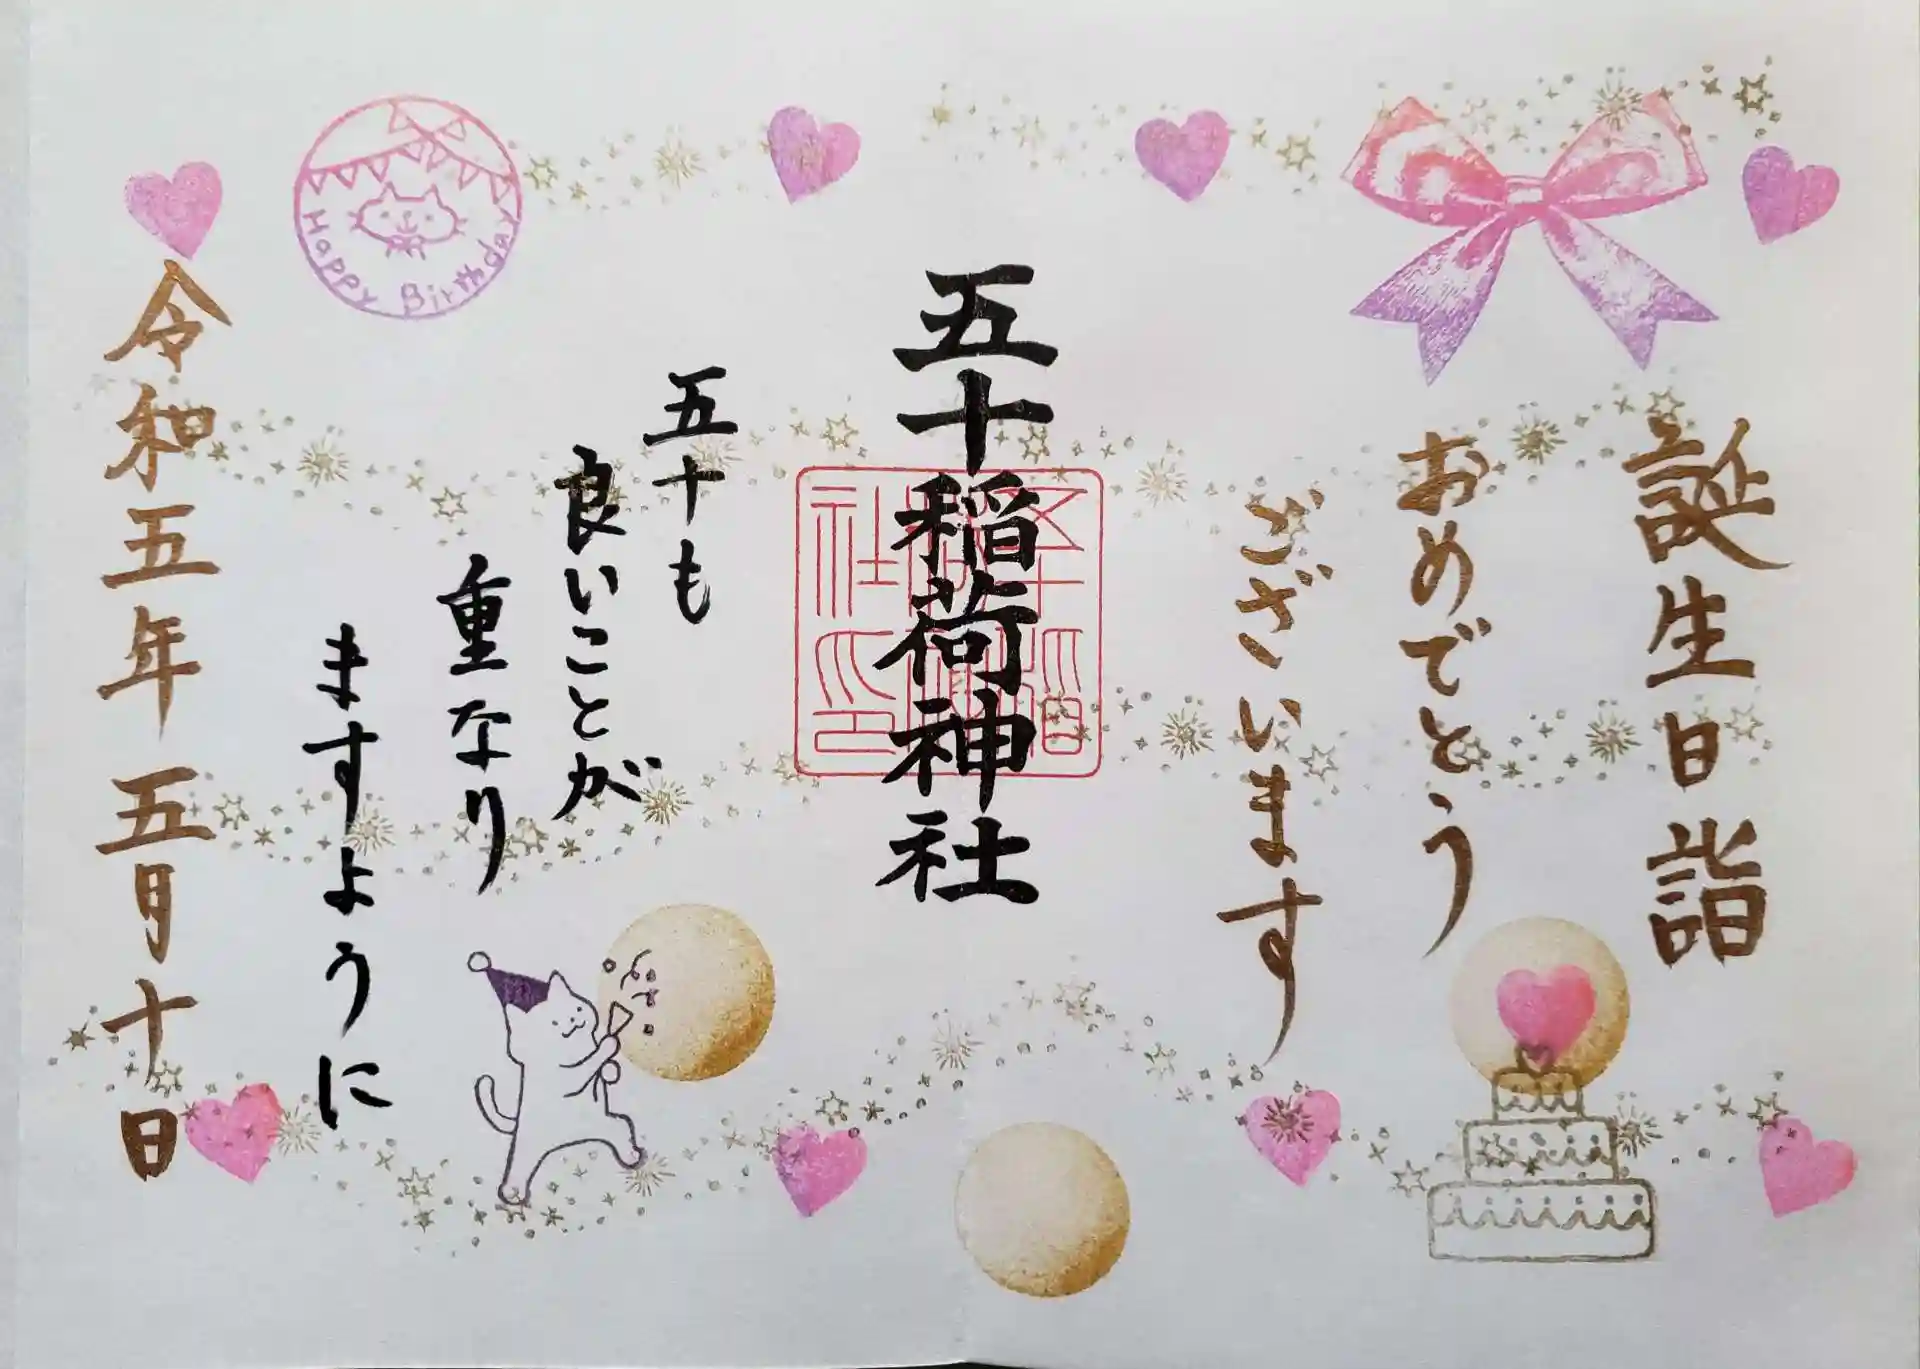 誕生日詣
おめでとう
ございます
五十稲荷神社
五十も
良いことが
重なり
ますように
令和五年 五月十日
Happy Birthday